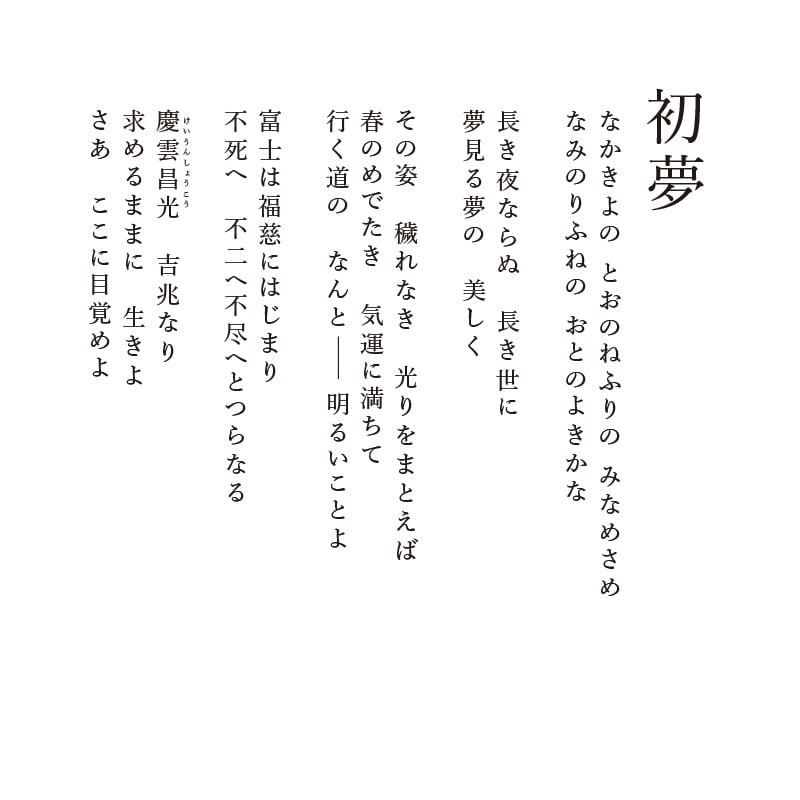 初夢
なかきよの とおのねふりの みなめさめ
なみのりふねの おとのよきかな
長き夜ならぬ　長き世に
夢見る夢の　美しく
その姿　穢れなき　光りをまとえば
春のめでたき　気運に満ちて
行く道の　なんと――明るいことよ
富士は福慈にはじまり
不死へ　不二へ不尽へとつらなる
慶雲昌光　吉兆なり
けいうんしょうこう
求めるままに　生きよ
さあ　ここに目覚めよ